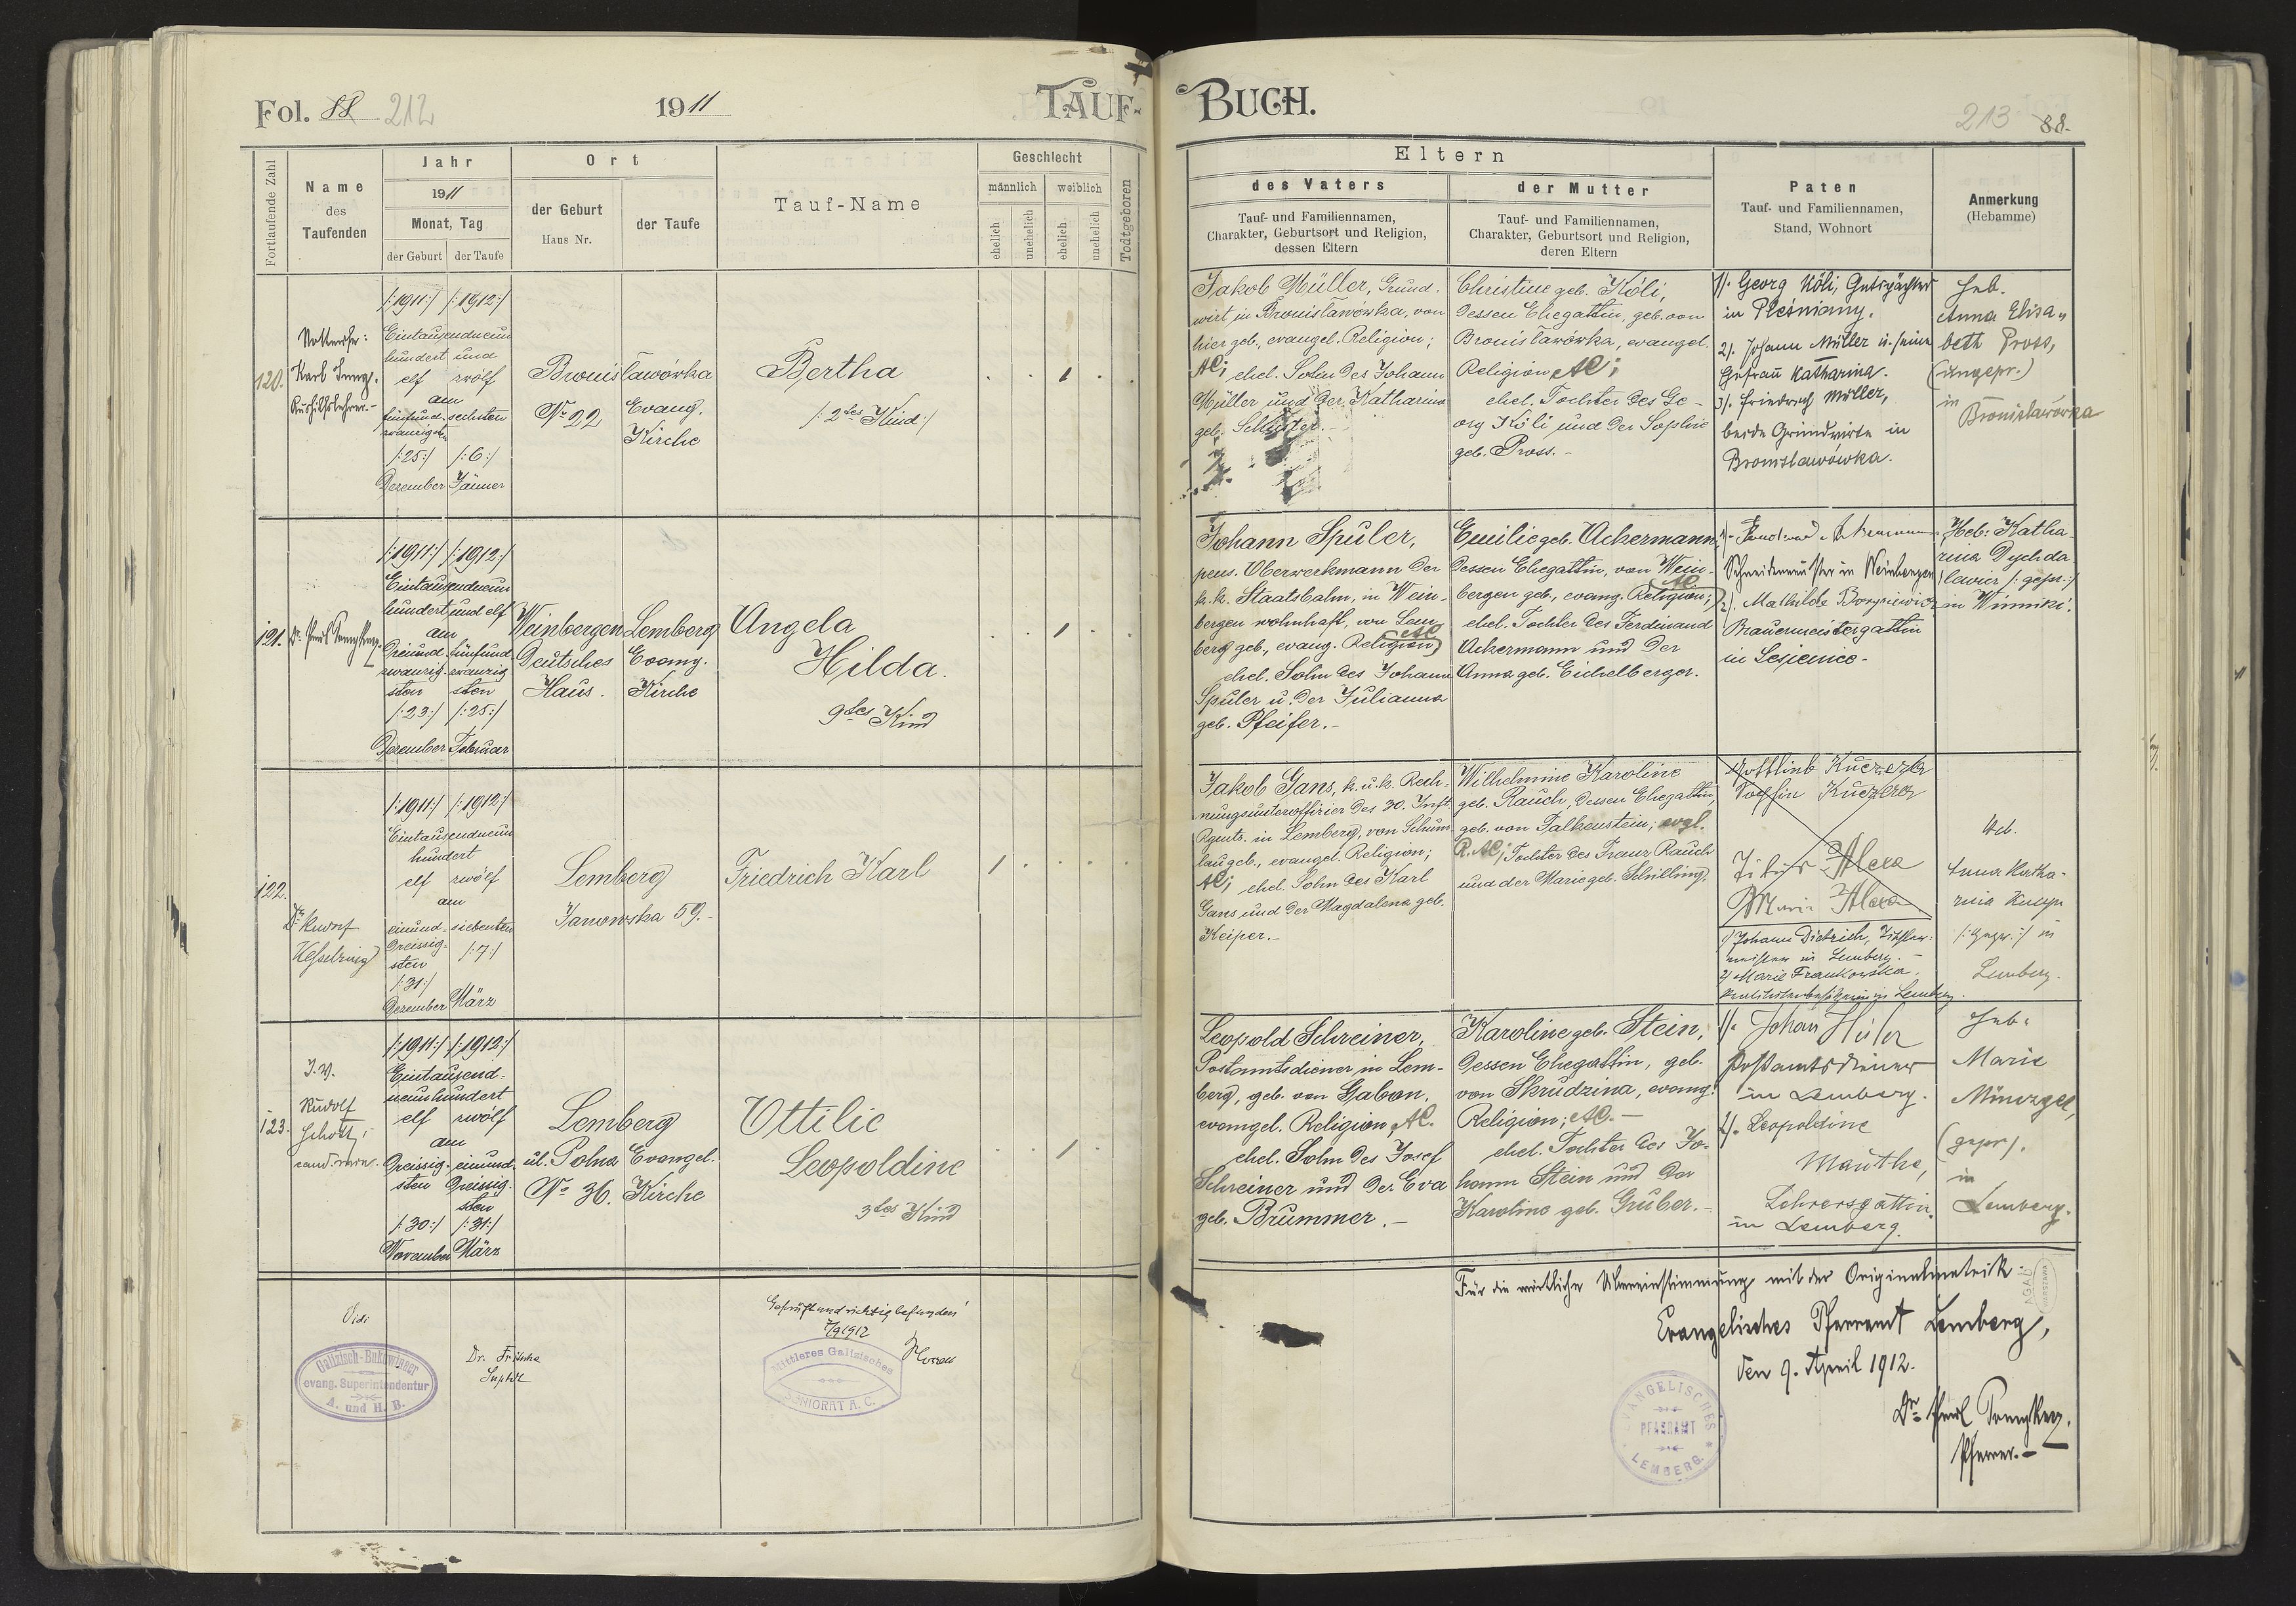 Fol. 88 212
1911
TAUF-
Fortlaufende Zahl
Name
des
Taufenden
Jahr
1911
Monat, Tag
der Geburt
der Taufe
Ort
der Geburt
Haus Nr.
der Taufe
Tauf-Name
Geschlecht
männlich
weiblich
ehelich
unehelich
ehelich
unehelich
Todtgeboren
120.
Karl
/:1911:/ /:1912:/
Eintausendneun
hundert und
elf zwölf
am
fünfund- sechsten
zwanzigsten
/:25:/ /:6:/
Dezember Jänner
Bronisławówka
No 22
Evang.
Kirche
Bertha
/: 2tes Kind:/
121.
/:1911:/ /:1912:/
Eintausendneun
hundert und elf
am
Dreiund- fünfund
zwanzig- zwanzig
sten sten
/:23:/ /:25:/
Dezember Februar
Weinbergen
Deutsches
Haus.
Lemberg
Evang.
Kirche
Angela
Hilda.
9tes Kind
122.
Dr Rudolf
Kesselring
/:1911:/ /:1912:/
Eintausendneun
hundert
elf zwölf
am
einund- siebenten
dreissig-
sten /:7:/
/:31:/
Dezember März
Lemberg
Janowska 59.
Friedrich Karl
123.
I. V.
Rudolf
Scholz,
cand. min.
/:1911:/ /:1912:/
Eintausend-
neunhundert
elf zwölf
am
Dreissig- einund-
sten dreissig-
sten
/:30:/ /:31:/
November März
Lemberg
ul. Polna
No 36.
Evangel.
Kirche
Ottilie
Leopoldine
3tes Kind
Vidi
Galizisch-Bukowinaer
evang. Superintendentur
A. und H. B.
Dr. Fritsche
Suptdt
Geprüft und richtig befunden
7/9 1912
Mittleres Galizisches
SENIORAT A. C.
BUCH.
213 88.
Eltern
des Vaters
Tauf- und Familiennamen,
Charakter, Geburtsort und Religion,
dessen Eltern
der Mutter
Tauf- und Familiennamen,
Charakter, Geburtsort und Religion,
deren Eltern
Paten
Tauf- und Familiennamen,
Stand, Wohnort
Anmerkung
(Hebamme)
Jakob Müller, Grund-
wirt in Bronisławówka, von
hier geb., evangel. Religion;
AC; ehel. Sohn des Johann
Müller und der Katharina
geb. Schlüter.-
Christine geb. Köli,
dessen Ehegattin, geb. von
Bronisławówka, evangel.
Religion AC;
ehel. Tochter des Ge-
org Köli und der Sophie
geb. Pross.-
1/. Georg Köli, Gutspächter
in Pleśniany.
2/. Johann Müller u. seine
Ehefrau Katharina.
3/. Friedrich Müller,
beide Grundwirte in
Bronislawówka.
Heb.
Anna Elisa-
beth Pross,
(ungepr.)
in
Bronislawówka
Johann Spuler,
pens. Oberwerkmann der
k. k. Staatsbahn, in Wein-
bergen wohnhaft, von Lem-
berg geb., evang. Religion AC
ehel. Sohn des Johann
Spuler u. der Julianna
geb. Pfeifer.-
Emilie geb. Ackermann,
dessen Ehegattin, von Wein-
bergen geb., evang. Religion AC;
ehel. Tochter des Ferdinand
Ackermann und der
Anna geb. Eichelberger.
Schneidermeister in Weinbergen
2/. Mathilde
Brauermeistergattin
in Lesienice-
Heb: Katha-
rina Dychda
lewicz /: gepr.:/
in Winniki.
Jakob Gans, k. u. k. Rech-
nungsunteroffizier des 30. Inft.
Rgmts. in Lemberg, von Schum-
lau geb., evangel. Religion;
AC; ehel. Sohn des Karl
Gans und der Magdalena geb.
Keiper.-
Wilhelmine Karoline
geb. Rauch, dessen Ehegattin,
geb. von Falkenstein, evgl.
R. AC; Tochter des Franz Rauch
und der Marie geb. Schilling.
Gottlieb Kuczera
Sophie Kuczera
Alexa
Maria Alexa
1/ Johann Dietrich, Tischler-
meister in Lemberg.-
2/ Marie Frankowska.
in Lemberg.
Heb.
Anna Katha-
rina
/: gepr.:/ in
Lemberg.
Leopold Schreiner,
Postamtsdiener in Lem-
berg, geb. von Gabon,
evangel. Religion AC.
ehel. Sohn des Josef
Schreiner und der Eva
geb. Brummer.-
Karoline geb. Stein,
dessen Ehegattin, geb.
von Skrudzina, evang.
Religion; AC.-
ehel. Tochter des Jo-
hann Stein und der
Karoline geb. Gruber.-
1/. Johan
Postamtsdiener
in Lemberg.
2/. Leopoldine
Mauthe,
Lehrersgattin,
in Lemberg.
Heb.
Marie
Münzgel,
(gepr).
in
Lemberg.
Für die wörtliche Übereinstimmung mit der Originalmatrik:
Evangelisches Pfarramt Lemberg,
den 9. April 1912.
Pfarrer.-
EVANGELISCHES
PFARRAMT
LEMBERG.
AGAD
WARSZAWA